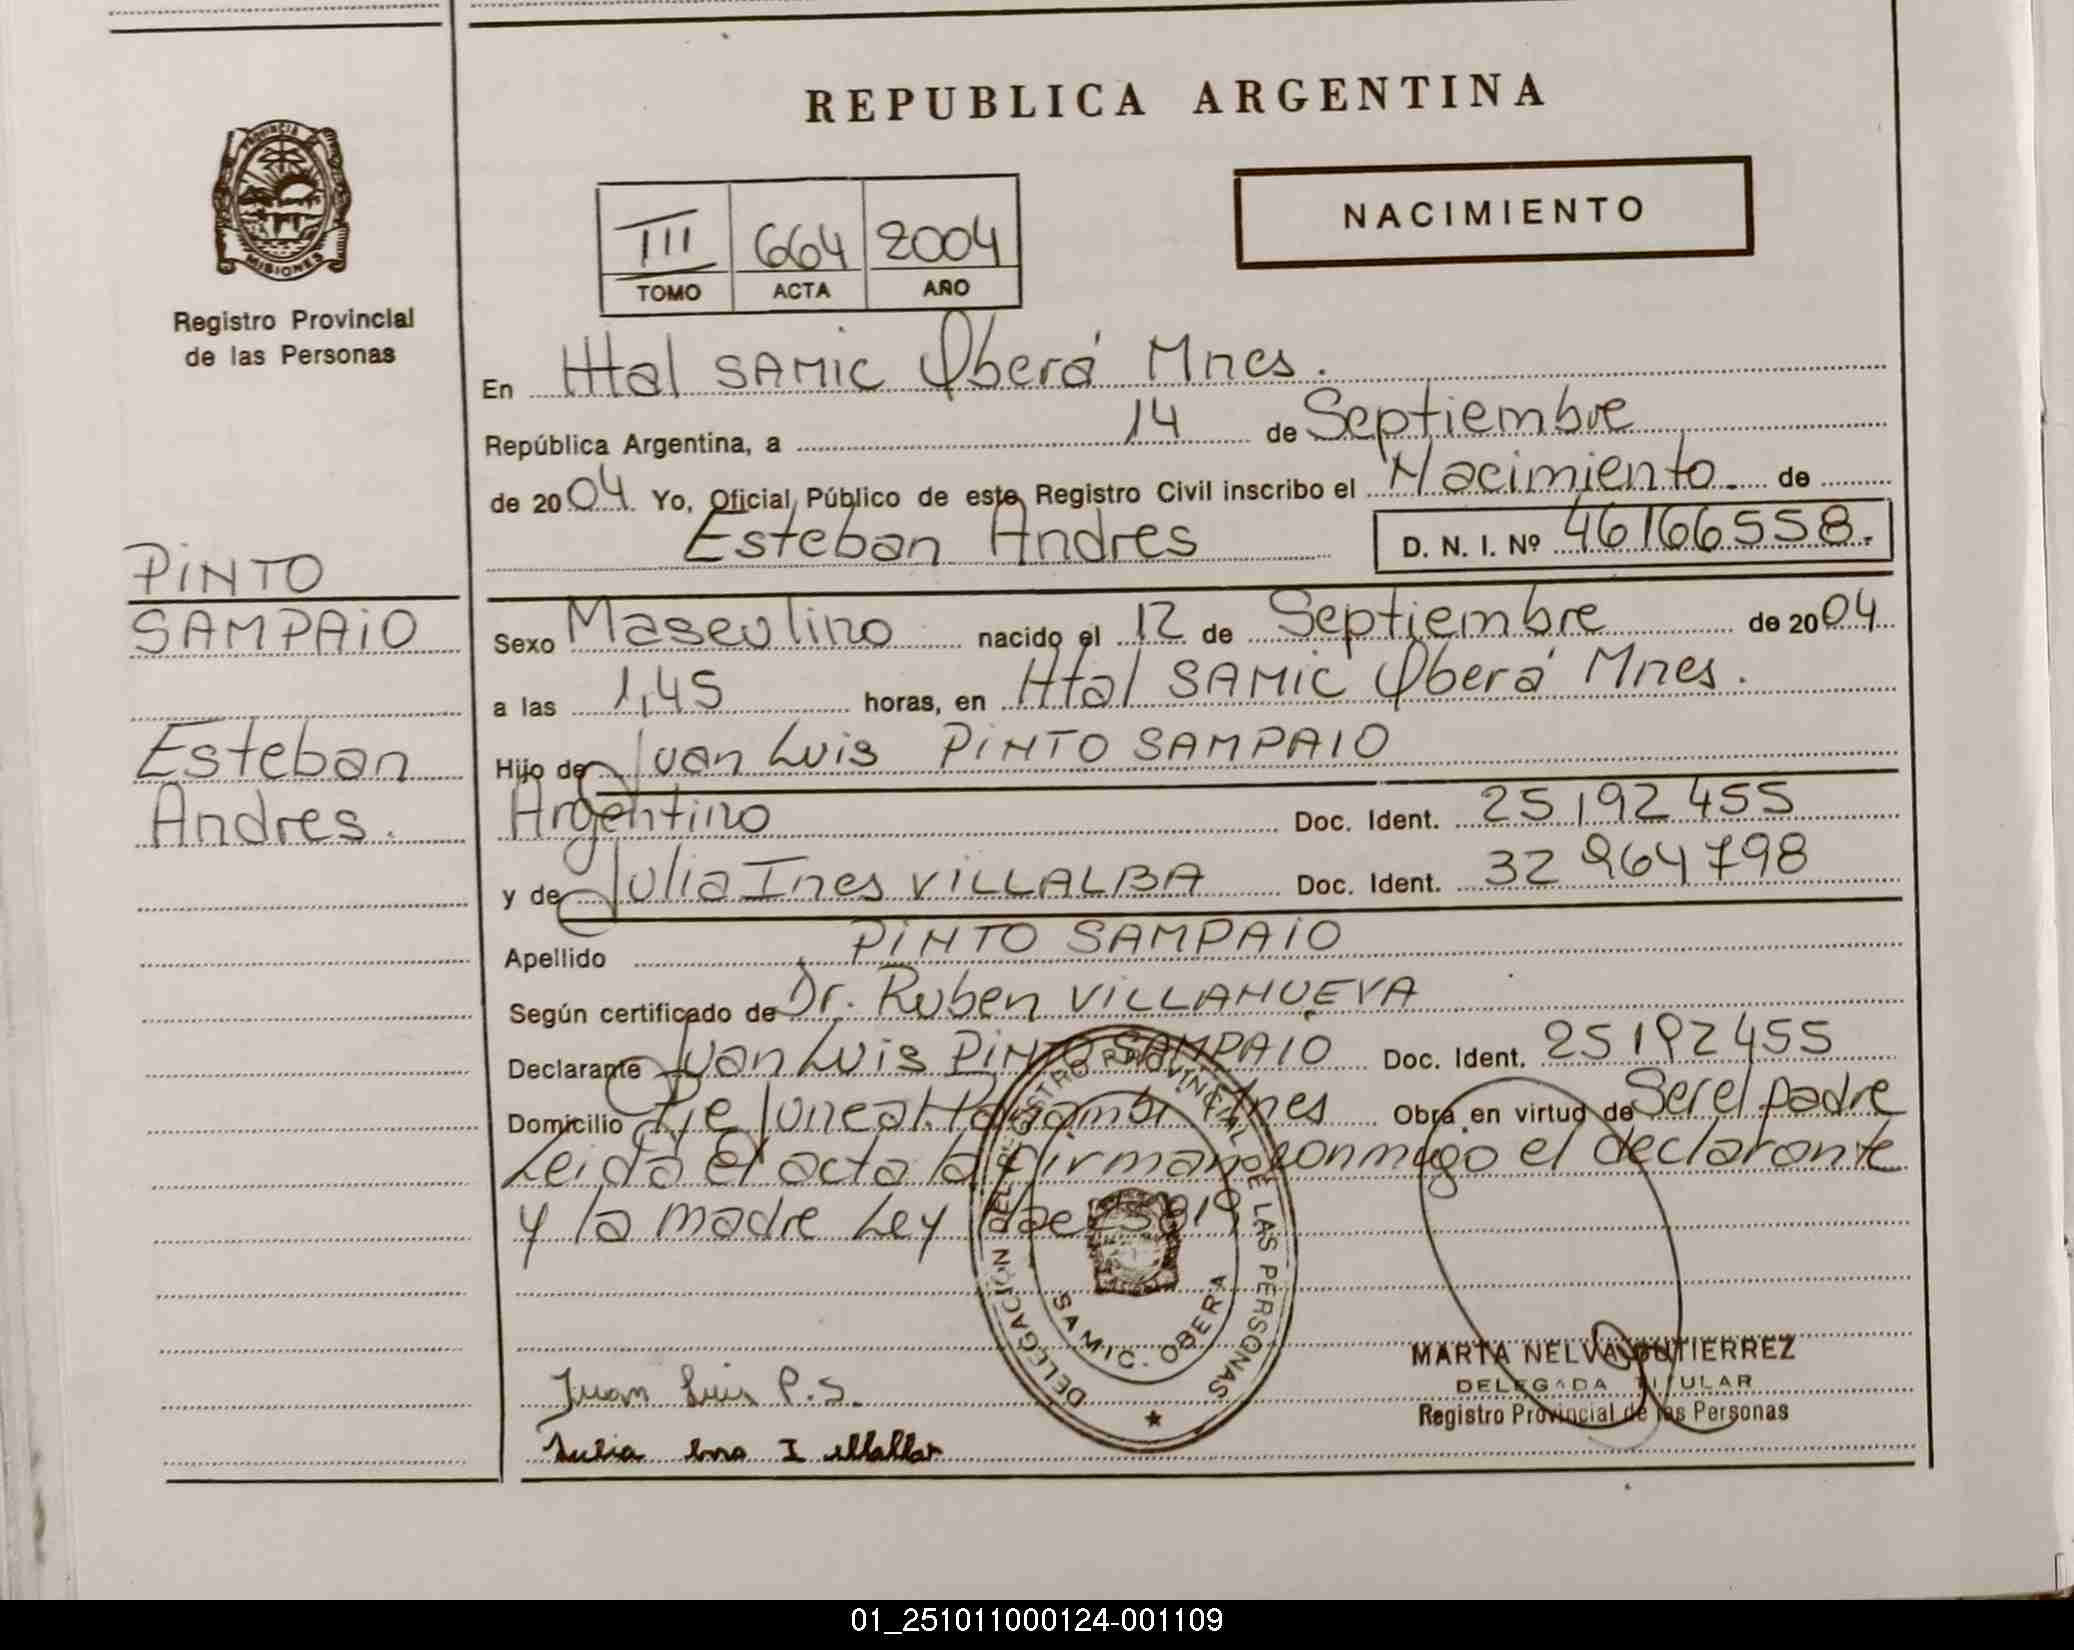 REPUBLICA ARGENTINA
PROVINCIA
MISIONES
Registro Provincial
de las Personas
NACIMIENTO
III 664 2004
TOMO ACTA AÑO
En Htal SAMIC Oberá Mnes.
República Argentina, a 14 de Septiembre
de 2004 Yo, Oficial Público de este Registro Civil inscribo el Nacimiento de
Esteban Andres D. N. I. Nº 46166558.
PINTO
SAMPAIO
Esteban
Andres.
Sexo Masculino nacido el 12 de Septiembre de 2004
a las 1,45 horas, en Htal SAMIC Oberá Mnes.
Hijo de Juan Luis PINTO SAMPAIO
Argentino Doc. Ident. 25192455
y de Julia Ines VILLALBA Doc. Ident. 32964798
Apellido PINTO SAMPAIO
Según certificado de Dr. Ruben VILLANUEVA
Declarante Juan Luis PINTO SAMPAIO Doc. Ident. 25192455
Domicilio Pje Mnes Obra en virtud de Ser el padre
Leida el acta la firman conmigo el declarante
y la madre Ley
DELEGACION DEL REGISTRO PROVINCIAL DE LAS PERSONAS
SAMIC. OBERA
Juan Luis P.S.
Julia
MARTA NELVA GUTIERREZ
DELEGADA TITULAR
Registro Provincial de las Personas
01_251011000124-001109